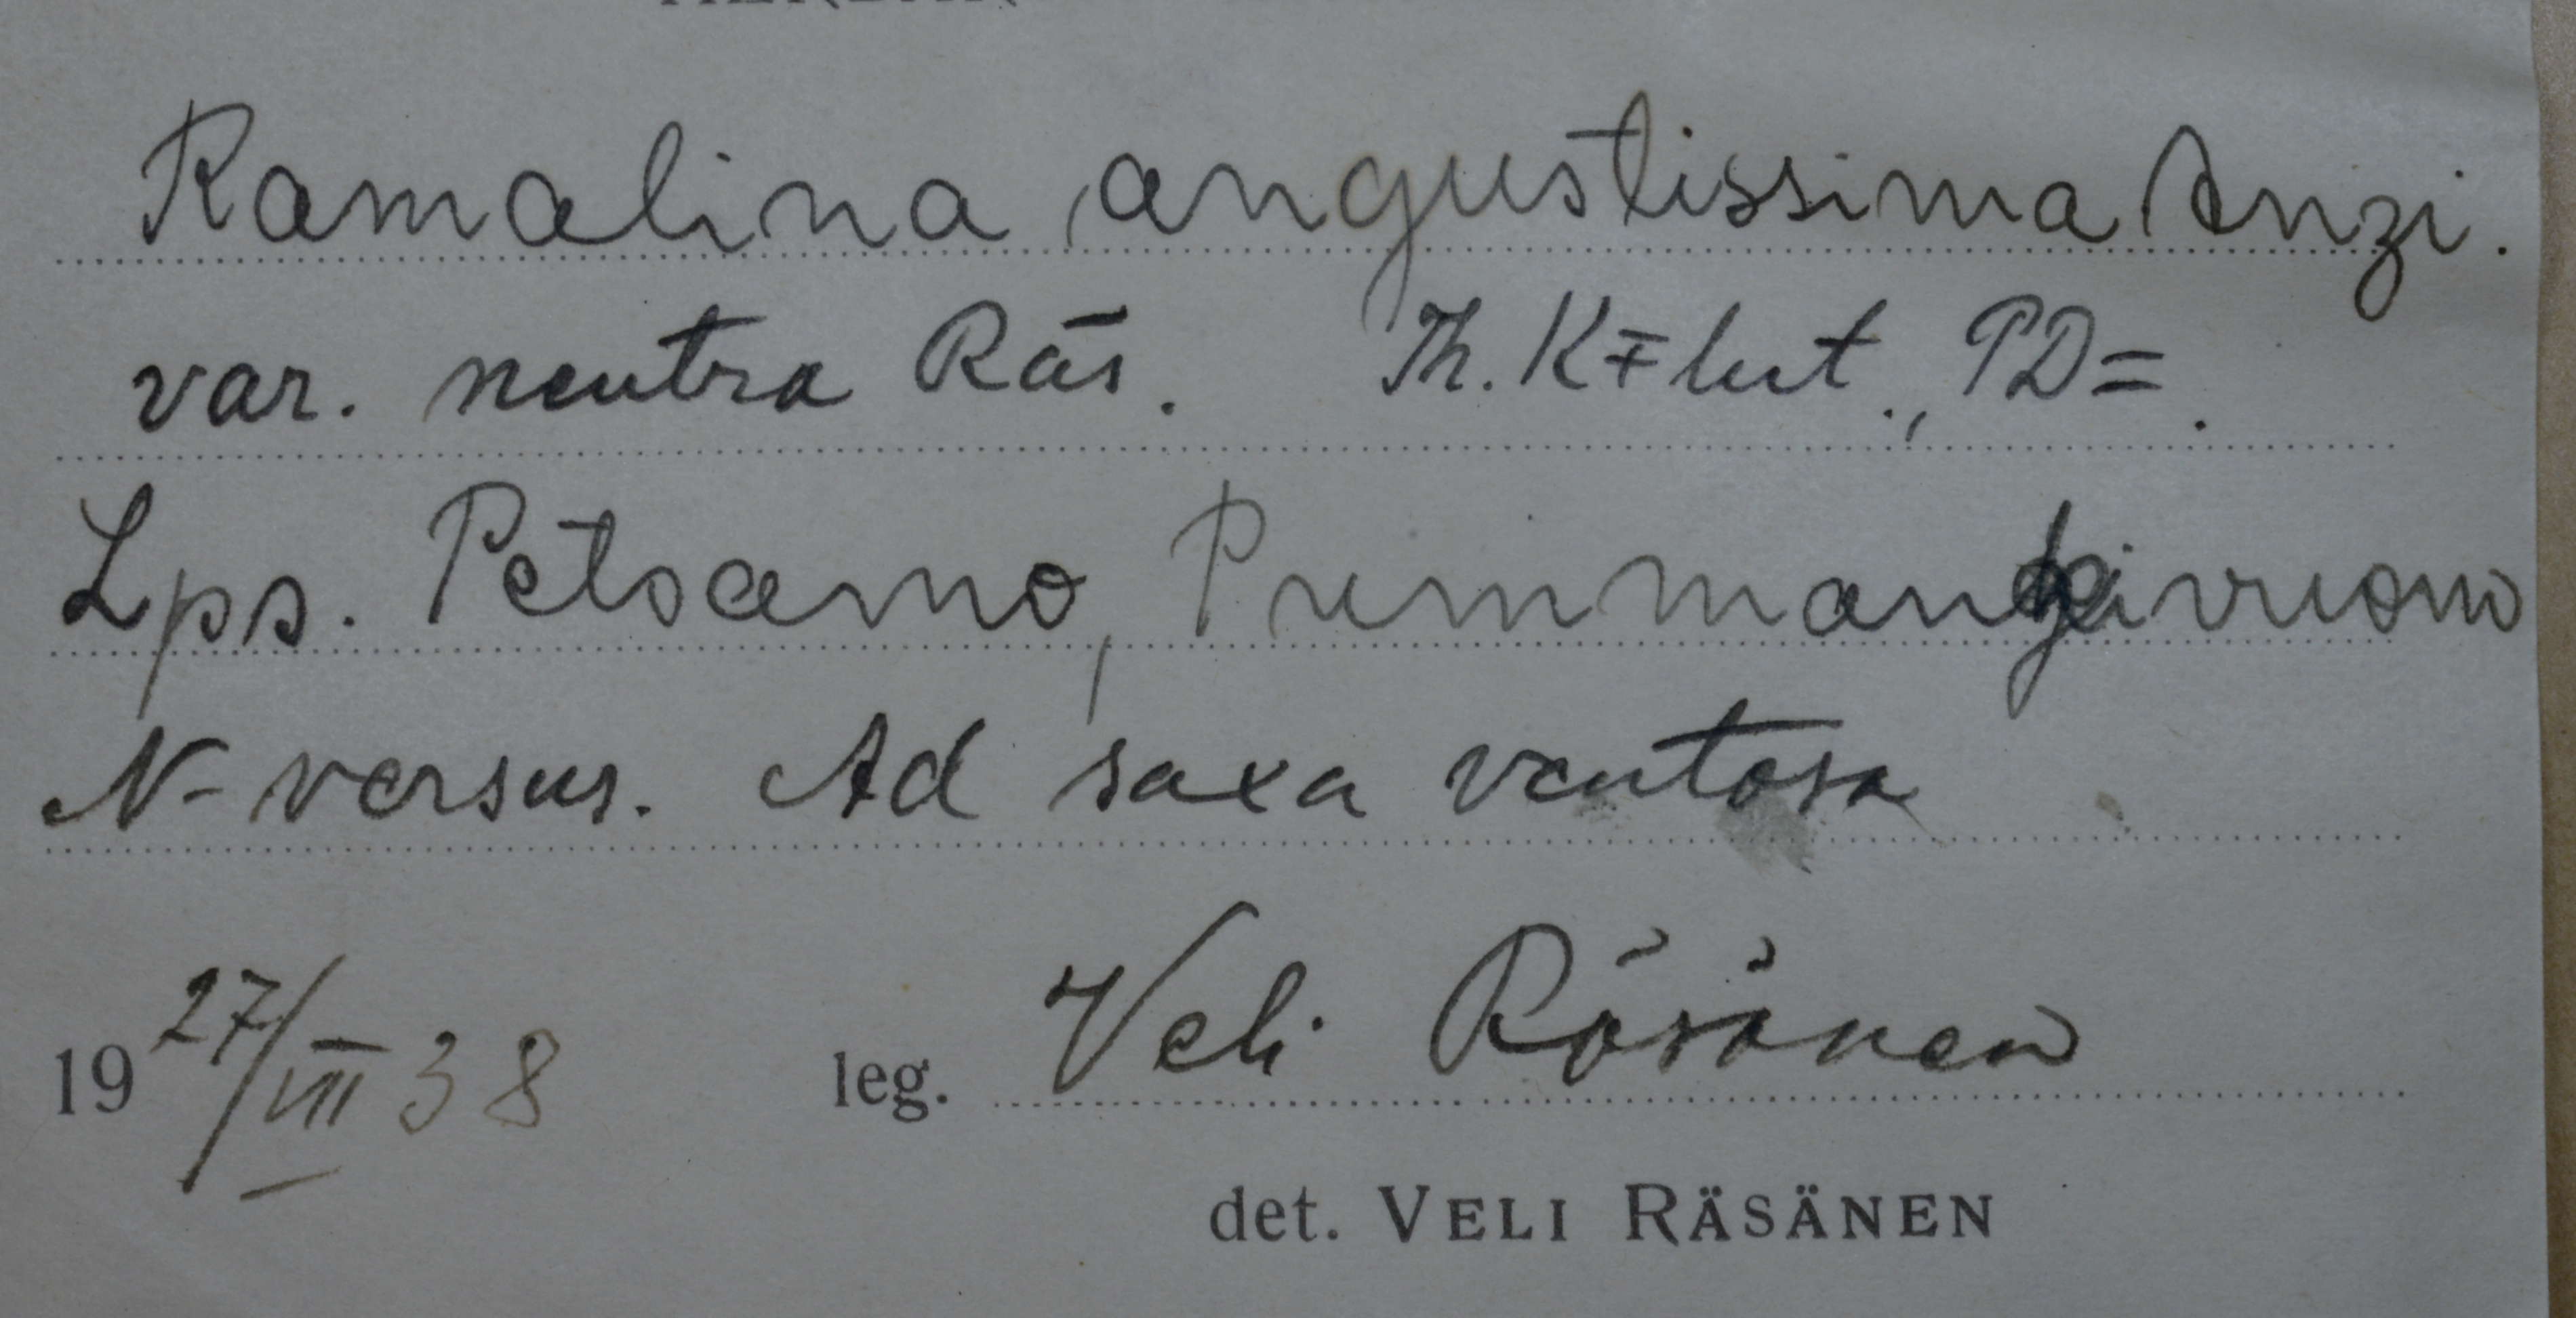 Ramalina angustissima Anzi.
var. neutra Räs. Th. K∓lut., PD=.
Lps. Petsamo, Pummankivuono
N-versus. Ad saxa ventosa
19 27/VIII 38 leg. Veli Räsänen
det. VELI RÄSÄNEN